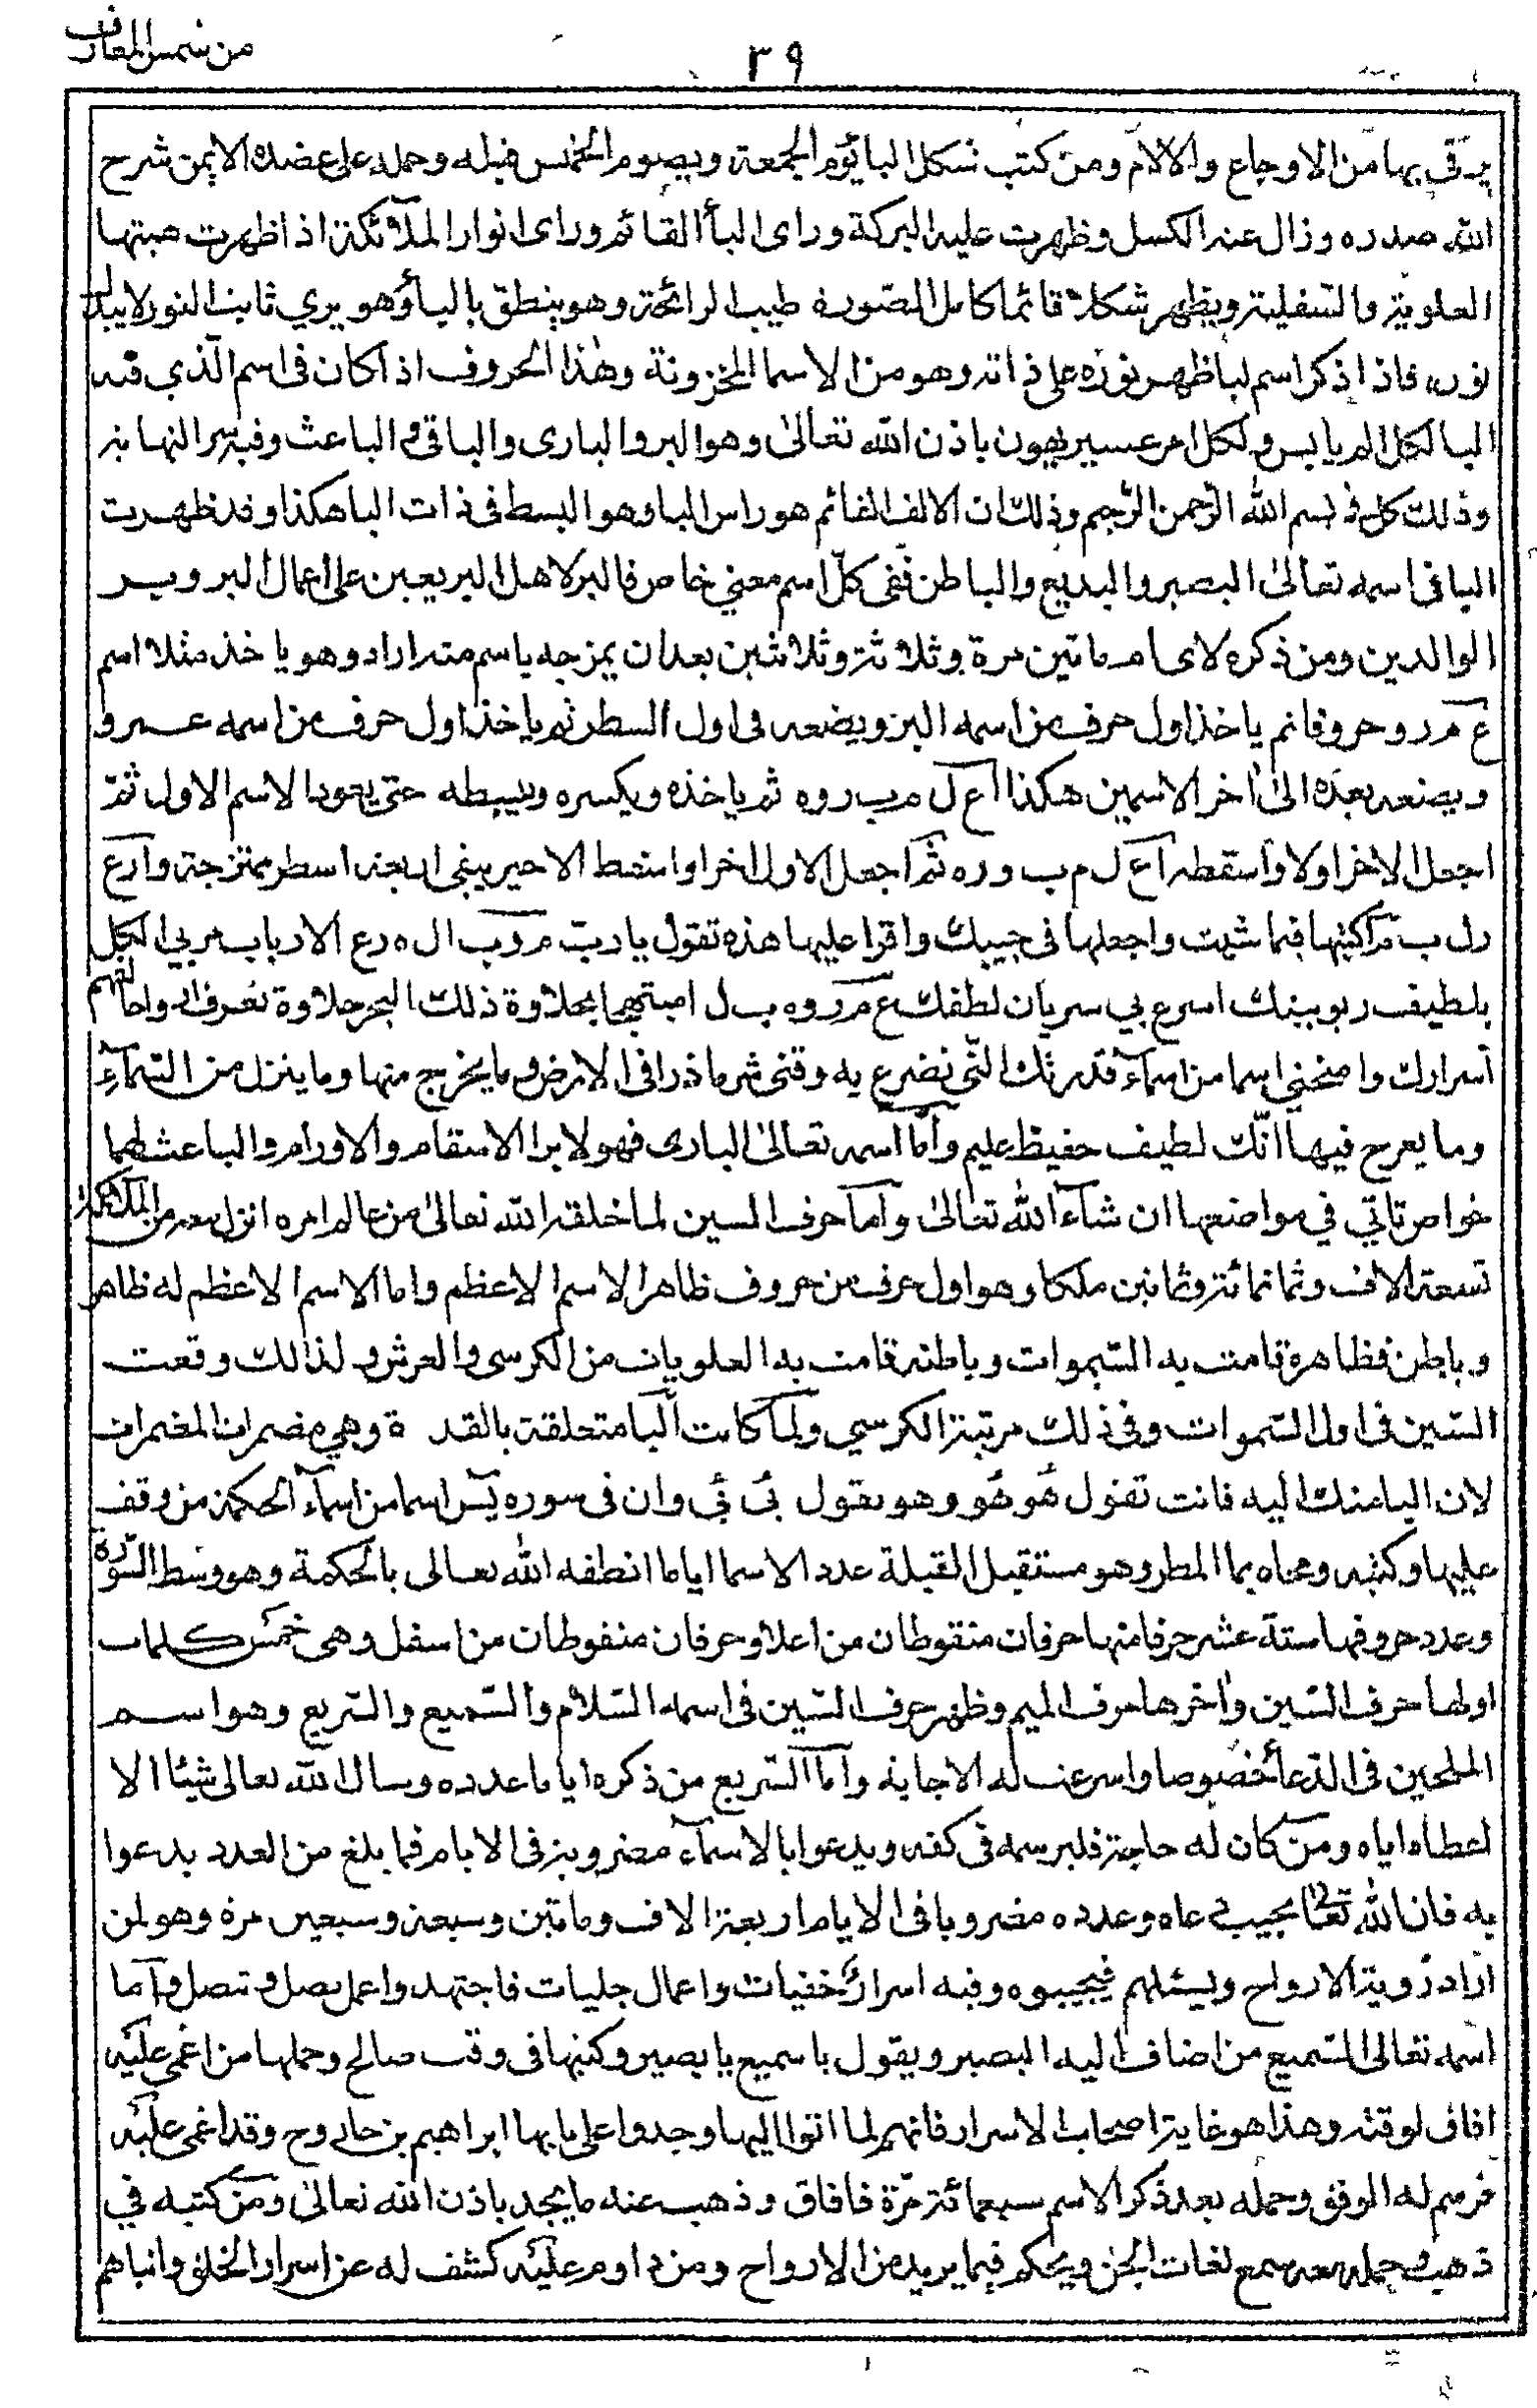 من شمس المعارف
٣٩
يرقى بها من الاوجاع والالام ومن كتب شكل البا يوم الجمعة ويصوم الخميس قبله وحمله على عضده الايمن شرح
الله صدره وزال عنه الكسل وظهرت عليه البركة وراى البأ القائم وراى انوار الملآئكة اذا ظهرت هيبتها
العلوية والسفلية ويظهر شكلا قائما كامل الصورة طيب الرائحة وهو ينطق باليأ وهو يري ثابت النور لايبدل
نوره فاذا ذكر اسم لبا ظهر نوره على ذاته وهو من الاسما المخزونة وهذا الحروف اذا كان في اسم الذي فيه
البا لكل الم يابس ولكل امر عسير يهون باذن الله تعالى وهو البر والبارى والباقى والباعث وفيه سر النهاية
وذلك كل فى بسم الله الرحمن الرحيم وذلك ان الالف القائم هو راس البا وهو البسط فى ذات البا هكذا وقد ظهرت
البا فى اسمه تعالى البصير والبديع والباطن ففى كل اسم معني خاص فالبر لاهل البر يعين على اعمال البر وبر
الوالدين ومن ذكره لاى امر مأتين مرة وثلاثة وثلاثين بعد ان يمزجه باسم من اراد وهو ياخذ مثلا اسم
ع م ر و حروفا ثم ياخذ اول حرف من اسمه البر ويضعه فى اول السطر ثم ياخذ اول حرف من اسمه عمرو
ويضعه بعده الى اخر الاسمين هكذا ا ع ل م ب ر و ه ثم ياخذه ويكسره ويبسطه حتى يعود الاسم الاول ثم
اجعل الاخر اولا واسقطه ا ع ل م ب و ر ه ثم اجعل الاول اخرا واسقط الاخير يبقى اربعة اسطر ممتزجة وا ر ع
ر ل ب م اكتبها فيما شيت واجعلها فى جيبك واقرا عليها هذه تقول يا رب م ر و ب ا ل ه ر ع الارباب مربي الكل
بلطيف ربوبيتك اسرع بي سريان لطفك ع م ر و ه ب ل ا بحلاوة ذلك البحر حلاوة تعرفني واحالفهم
اسرارك وامنحني اسما من اسمآء قدرتك التي نضرع به وقني شر ما ذرا فى الارض وما يخرج منها وما ينزل من السمآء
وما يعرج فيها انك لطيف حفيظ عليم واما اسمه تعالى البارى فهو لابرا الاسقام والاورام والباعث لهما
خواص تاتي في مواضعها ان شآء الله تعالى واما حرف السين لما خلقه الله تعالى من عالم امره انزل معه من الملائكة
تسعة الاف وثمانمائة وثمانين ملكا وهو اول حرف من حروف ظاهر الاسم الاعظم واما الاسم الاعظم له ظاهر
وباطن فظاهره قامت به السموات وباطنه قامت به العلويات من الكرسى والعرش ولذالك وقعت
السين فى اول السموات وفى ذلك مرتبة الكرسي ولما كانت البا متعلقة بالقد ة وهي مضمرات المضمرات
لان البا منك اليه فانت تقول هو هو وهو يقول بي بي وان فى سوره يس اسما من اسمآء الحكمة من وقف
عليها وكتبه ومحاه بما المطر وهو مستقبل القبلة عدد الاسما اياما انطقه الله تعالى بالحكمة وهو وسط السورة
وعدد حروفها ستة عشر حرفا منها حرفان منقوطان من اعلا وحرفان منقوطان من اسفل وهى خمس كلمات
اولها حرف السين واخرها حرف الميم وظهر حرف السين فى اسمه السلام والسميع والسريع وهو اسم
الملحين فى الدعأ خصوصا واسرعت له الاجابة واما السريع من ذكره اياما عدده وسال الله تعالى شيئا الا
اعطاه اياه ومن كان له حاجة فليرسمه فى كفه ويدعوا بالاسمآء مضروبة فى الايام فما بلغ من العدد يدعوا
به فان الله تعالى يجيب دعاه وعدده مضروبا فى الايام اربعة الاف ومأتين وسبعة وسبعين مرة وهو لمن
اراد رؤية الارواح ويسئلهم فيجيبوه وفيه اسرار خفيات واعمال جليات فاجتهد واعمل بصل وتصل واما
اسمه تعالى السميع من اضاف اليه البصير ويقول يا سميع يا بصير وكتبها فى وقت صالح وحملها من اغمى عليه
افاق لوقته وهذا هو غاية اصحاب الاسرار فانهم لما اتوا اليها وجدوا على بابها ابراهيم بن حاروح وقد اغمى عليه
فرسم له الوفق وحمله بعد ذكر الاسم سبعمائة مرة فافاق وذهب عنه ما يجد باذن الله تعالى ومن كتبه في
ذهب وحمله معه سمع لغات الجن ويحكم فيما يريد من الارواح ومن داوم عليه كشف له عن اسرار الخلق وانباهم